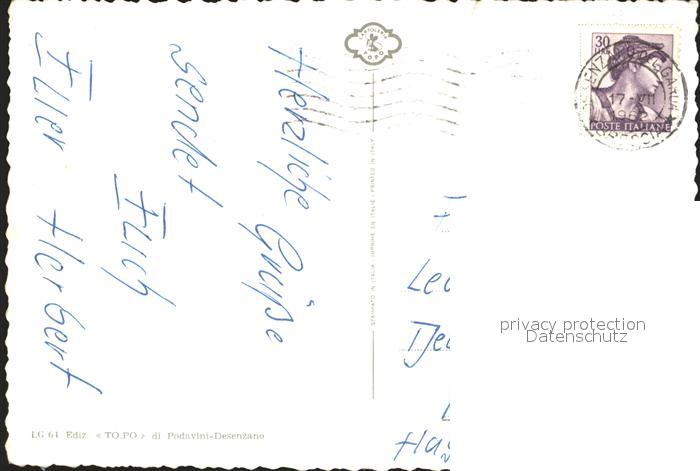 Herzliche Grüße
sendet
Euch
Euer Herbert
CARTOLERIA
TOPO
STAMPATO IN ITALIA - IMPRIMÉ EN ITALIE - PRINTED IN ITALY
LG 61 Ediz. « TO.PO » di Podavini-Desenzano
30
POSTE ITALIANE
17 - VII
privacy protection
Datenschutz